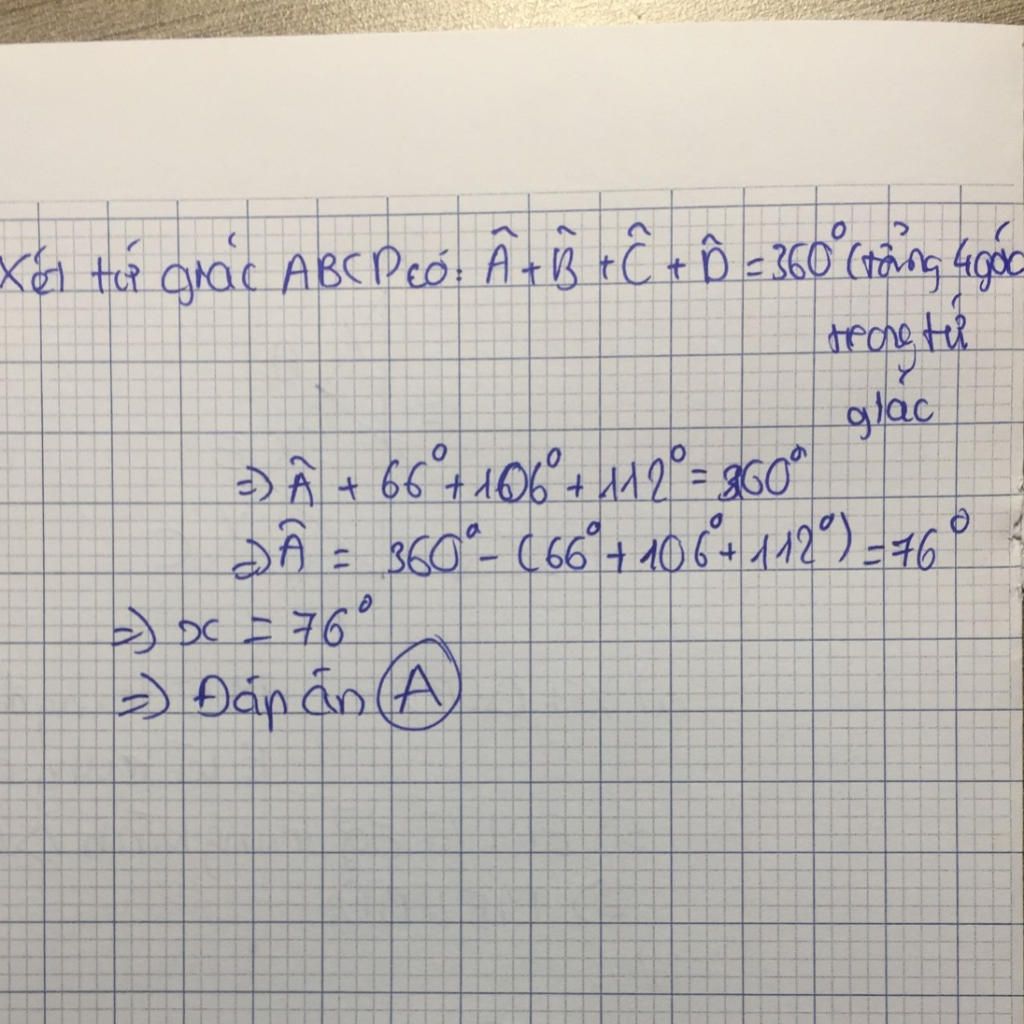 Xét tứ giác ABCD có: Â + B̂ + Ĉ + D̂ = 360° (tổng 4 góc
trong tứ
giác
=> Â + 66° + 106° + 112° = 360°
=> Â = 360° - (66° + 106° + 112°) = 76°
=> x = 76°
=> Đáp án A